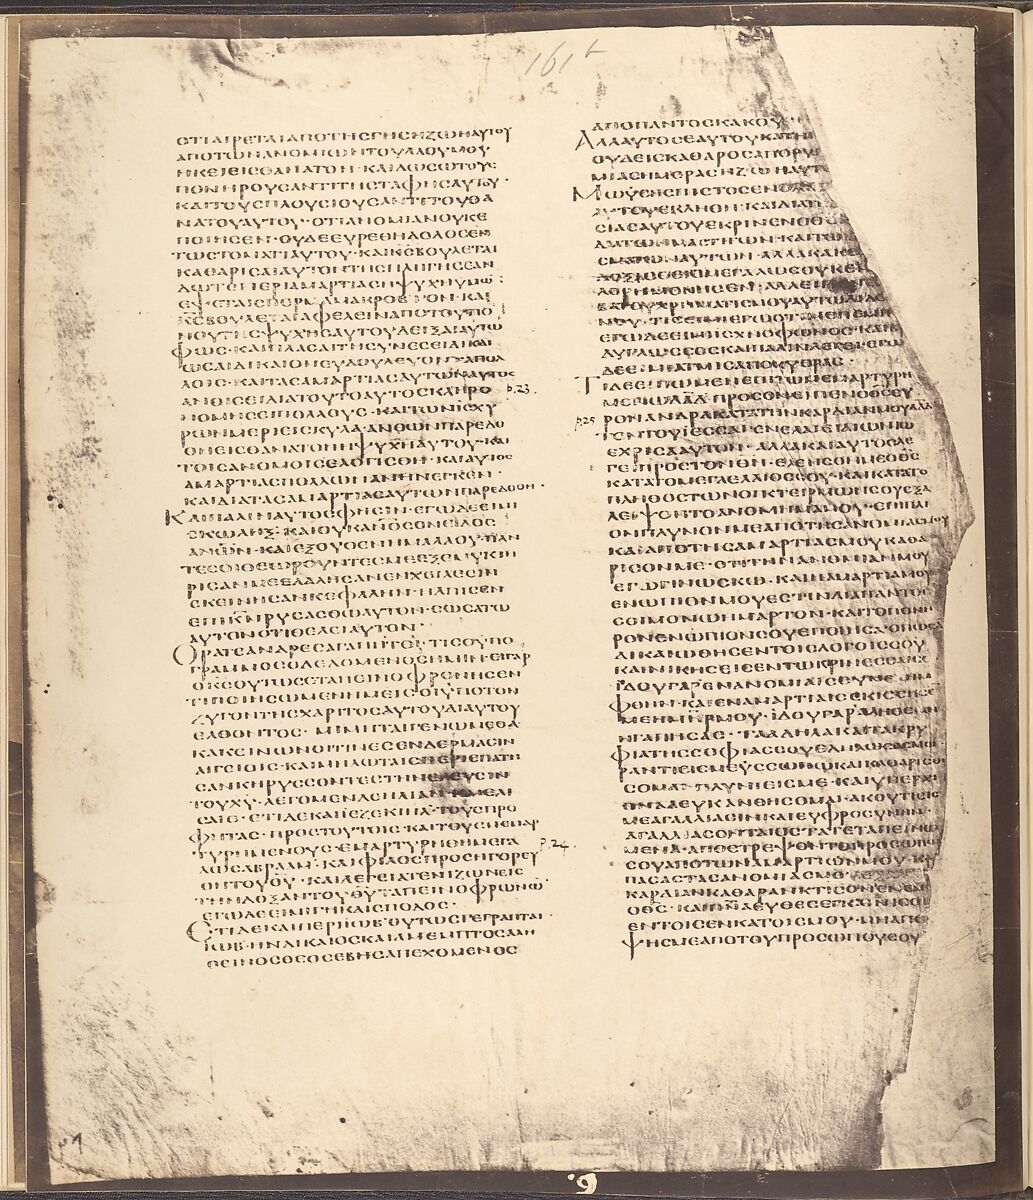 161b
ΟΤΙΑΙΡΕΤΑΙΑΠΟΤΗϹΓΗϹΗΖΩΗΑΥΤΟΥ
ΑΠΟΤΩΝΑΝΟΜΙΩΝΤΟΥΛΑΟΥΜΟΥ
ΗΚΕΙΕΙϹΘΑΝΑΤΟΝ·ΚΑΙΔΩϹΩΤΟΥϹ
ΠΟΝΗΡΟΥϹΑΝΤΙΤΗϹΤΑΦΗϹΑΥΤΟΥ·
ΚΑΙΤΟΥϹΠΛΟΥϹΙΟΥϹΑΝΤΙΤΟΥΘΑ
ΝΑΤΟΥΑΥΤΟΥ·ΟΤΙΑΝΟΜΙΑΝΟΥΚΕ
ΠΟΙΗϹΕΝ·ΟΥΔΕΕΥΡΕΘΗΔΟΛΟϹΕΝ
ΤΩϹΤΟΜΑΤΙΑΥΤΟΥ·ΚΑΙΚ̅Ϲ̅ΒΟΥΛΕΤΑΙ
ΚΑΘΑΡΙϹΑΙΑΥΤΟΝΤΗϹΠΛΗΓΗϹΕΑΝ
ΔΩΤΕΠΕΡΙΑΜΑΡΤΙΑϹΗΨΥΧΗΥΜΩ
ΕΨΕΤΑΙϹΠΕΡΜΑΜΑΚΡΟΒΙΟΝ·ΚΑΙ
Κ̅Ϲ̅ΒΟΥΛΕΤΑΙΑΦΕΛΕΙΝΑΠΟΤΟΥΠΟ
ΝΟΥΤΗϹΨΥΧΗϹΑΥΤΟΥΔΕΙΞΑΙΑΥΤΩ
ΦΩϹ·ΚΑΙΠΛΑϹΑΙΤΗϹΥΝΕϹΕΙΔΙΚΑΙ
ΩϹΑΙΔΙΚΑΙΟΝΕΥΔΟΥΛΕΥΟΝΤΑΠΟΛ
ΛΟΙϹ·ΚΑΙΤΑϹΑΜΑΡΤΙΑϹΑΥΤΩΝΑΥΤΟϹ
ΑΝΟΙϹΕΙΔΙΑΤΟΥΤΟΑΥΤΟϹΚΛΗΡΟ p.23.
ΝΟΜΗϹΕΙΠΟΛΛΟΥϹ·ΚΑΙΤΩΝΙϹΧΥ
ΡΩΝΜΕΡΙΕΙϹΚΥΛΑ·ΑΝΘΩΝΠΑΡΕΔΟ
ΘΗΕΙϹΘΑΝΑΤΟΝΗΨΥΧΗΑΥΤΟΥ·ΚΑΙ
ΤΟΙϹΑΝΟΜΟΙϹΕΛΟΓΙϹΘΗ·ΚΑΙΑΥΤΟϹ
ΑΜΑΡΤΙΑϹΠΟΛΛΩΝΑΝΗΝΕΓΚΕΝ·
ΚΑΙΔΙΑΤΑϹΑΜΑΡΤΙΑϹΑΥΤΩΝΠΑΡΕΔΟΘΗ·
ΚΑΙΠΑΛΙΝΑΥΤΟϹΦΗϹΙΝ·ΕΓΩΔΕΕΙΜΙ
ϹΚΩΛΗΞ·ΚΑΙΟΥΚΑΝΟ̅Ϲ̅ΟΝΕΙΔΟϹ
ΑΝΩ̅Ν̅·ΚΑΙΕΞΟΥΘΕΝΗΜΑΛΑΟΥ·ΠΑΝ
ΤΕϹΟΙΘΕΩΡΟΥΝΤΕϹΜΕΕΞΕΜΥΚΤΗ
ΡΙϹΑΝΜΕΕΛΑΛΗϹΑΝΕΝΧΕΙΛΕϹΙΝ
ΕΚΕΙΝΗϹΑΝΚΕΦΑΛΗΝ·ΗΛΠΙϹΕΝ
ΕΠΙΚ̅Ν̅ΡΥϹΑϹΘΩΑΥΤΟΝ·ϹΩϹΑΤΩ
ΑΥΤΟΝΟΤΙΘΕΛΕΙΑΥΤΟΝ·
ΟΡΑΤΕΑΝΔΡΕϹΑΓΑΠΗΤΟΙ·ΤΙϹΟΥΠΟ
ΓΡΑΜΜΟϹΟΔΕΔΟΜΕΝΟϹΗΜΙΝ·ΕΙΓΑΡ
ΟΚ̅Ϲ̅ΟΥΤΩϹΕΤΑΠΕΙΝΟΦΡΟΝΗϹΕΝ
ΤΙΠΟΙΗϹΩΜΕΝΗΜΕΙϹΟΙΥΠΟΤΟΝ
ΖΥΓΟΝΤΗϹΧΑΡΙΤΟϹΑΥΤΟΥΔΙΑΥΤΟΥ
ΕΛΘΟΝΤΟϹ·ΜΙΜΗΤΑΙΓΕΝΩΜΕΘΑ
ΚΑΚΕΙΝΩΝΟΙΤΙΝΕϹΕΝΔΕΡΜΑϹΙΝ
ΑΙΓΕΙΟΙϹ·ΚΑΙΜΗΛΩΤΑΙϹΠΕΡΙΕΠΑΤΗ
ϹΑΝΚΗΡΥϹϹΟΝΤΕϹΤΗΝΕΛΕΥϹΙΝ
ΤΟΥΧ̅Υ̅·ΛΕΓΟΜΕΝΔΕΗΛΙΑΝ·ΚΑΙΕΛΙ
ϹΑΙΕ·ΕΤΙΔΕΚΑΙΙΕΖΕΚΙΗΛ·ΤΟΥϹΠΡΟ
ΦΗΤΑϹ·ΠΡΟϹΤΟΥΤΟΙϹ·ΚΑΙΤΟΥϹΜΕΜΑΡ
ΤΥΡΗΜΕΝΟΥϹ·ΕΜΑΡΤΥΡΗΘΗΜΕΓΑ p.24.
ΛΩϹΑΒΡΑΑΜ·ΚΑΙΦΙΛΟϹΠΡΟϹΗΓΟΡΕΥ
ΘΗΤΟΥΘ̅Υ̅·ΚΑΙΛΕΓΕΙΑΤΕΝΙΖΩΝΕΙϹ
ΤΗΝΔΟΞΑΝΤΟΥΘ̅Υ̅ΤΑΠΕΙΝΟΦΡΩΝΩ̅
ΕΓΩΔΕΕΙΜΙΓΗΚΑΙϹΠΟΔΟϹ·
ΕΤΙΔΕΚΑΙΠΕΡΙΙΩΒ·ΟΥΤΩϹΓΕΓΡΑΠΤΑΙ·
ΙΩΒ·ΗΝΔΙΚΑΙΟϹΚΑΙΑΜΕΜΠΤΟϹΑΛΗ
ΘΕΙΝΟϹΘΕΟϹΕΒΗϹΑΠΕΧΟΜΕΝΟϹ
ΑΠΟΠΑΝΤΟϹΚΑΚΟΥ·
ΑΛΛΑΥΤΟϹΕΑΥΤΟΥΚΑΤΗ
ΟΥΔΕΙϹΚΑΘΑΡΟϹΑΠΟΡΥ
ΜΙΑϹΗΜΕΡΑϹΗΖΩΗΑΥΤ
ΜΩΥϹΗϹΠΙϹΤΟϹΕΝΟ
ΑΥΤΟΥΕΚΛΗΘΗ·ΚΑΙΔΙΑΤ
ϹΙΑϹΑΥΤΟΥΕΚΡΙΝΕΝΟΘ̅Ϲ̅
ΔΙΑΤΩΝΜΑϹΤΙΓΩΝ·ΚΑΙΤΩΝ
ΑΥΤΩΝ·ΑΛΛΑΚΑΚΕΙ
ΜΕΓΑΛΩϹΟΥΚΕ
ΛΟΡΗΜΟΝΗϹΕΝ·ΑΛΛΕΙΠΕΝ
ΒΑΤΟΥΧΡΗΜΑΤΙϹΜΟΥΑΥΤΩΔΙΔΟ
ΝΟΥ·ΤΙϹΕΙΜΙΕΓΩΟΤΙΜΕΠΕΜΠ
ΕΓΩΔΕΕΙΜΙΙϹΧΝΟΦΩΝΟϹ·ΚΑΙΒ
ΔΥΓΛΩϹϹΟϹΚΑΙΠΑΛΙΝΛΕΓΕΙ·ΕΓΩ
ΔΕΕΙΜΙΑΤΜΙϹΑΠΟΚΥΘΡΑϹ·
ΤΙΔΕΕΙΠΩΜΕΝΕΠΙΤΩΜΕΜΑΡΤΥΡΗ
ΜΕΝΩΔ̅Α̅Δ̅·ΠΡΟϹΟΝΕΙΠΕΝΟΘ̅Ϲ̅ΕΥ
p.25 ΡΟΝΑΝΔΡΑΚΑΤΑΤΗΝΚΑΡΔΙΑΝΜΟΥΔ̅Α̅Δ̅
ΤΟΝΤΟΥΙΕϹϹΑΙ·ΕΝΕΛΑΙΕΙΑΙΩΝΙΩ
ΕΧΡΙϹΑΑΥΤΟΝ·ΑΛΛΑΚΑΙΑΥΤΟϹΛΕ
ΓΕΙΠΡΟϹΤΟΝΘ̅Ν̅·ΕΛΕΗϹΟΝΜΕΟΘ̅Ϲ̅
ΚΑΤΑΤΟΜΕΓΑΕΛΑΙΟϹϹΟΥ·ΚΑΙΚΑΤΑΤΟ
ΠΛΗΘΟϹΤΩΝΟΙΚΤΕΙΡΜΩΝϹΟΥΕΞΑ
ΛΕΙΨΟΝΤΟΑΝΟΜΗΜΑΜΟΥ·ΕΠΙΠΛΕΙ
ΟΝΠΛΥΝΟΝΜΕΑΠΟΤΗϹΑΝΟΜΙΑϹΜΟΥ
ΚΑΙΑΠΟΤΗϹΑΜΑΡΤΙΑϹΜΟΥΚΑΘΑ
ΡΙϹΟΝΜΕ·ΟΤΙΤΗΝΑΝΟΜΙΑΝΜΟΥ
ΕΓΩΓΙΝΩϹΚΩ·ΚΑΙΗΑΜΑΡΤΙΑΜΟΥ
ΕΝΩΠΙΟΝΜΟΥΕϹΤΙΝΔΙΑΠΑΝΤΟϹ
ϹΟΙΜΟΝΩΗΜΑΡΤΟΝ·ΚΑΙΤΟΠΟΝΗ
ΡΟΝΕΝΩΠΙΟΝϹΟΥΕΠΟΙΗϹΑ·ΟΠΩϹΑ
ΔΙΚΑΙΩΘΗϹΕΝΤΟΙϹΛΟΓΟΙϹϹΟΥ
ΚΑΙΝΙΚΗϹΕΙϹΕΝΤΩΚΡΙΝΕϹΘΑΙϹΕ
ΙΔΟΥΓΑΡΕΝΑΝΟΜΙΑΙϹϹΥΝΕΛΗΜ
ΦΘΗΝ·ΚΑΙΕΝΑΜΑΡΤΙΑΙϹΕΚΙϹϹΗϹΕ
ΜΕΗΜ̅Η̅Ρ̅ΜΟΥ·ΙΔΟΥΓΑΡΑΛΗΘΕΙΑΝ
ΗΓΑΠΗϹΑϹ·ΤΑΑΔΗΛΑΚΑΙΤΑΚΡΥ
ΦΙΑΤΗϹϹΟΦΙΑϹϹΟΥΕΔΗΛΩϹΑϹΜΟΙ
ΡΑΝΤΙΕΙϹΜΕΥϹϹΩΠΩΚΑΙΚΑΘΑΡΙϹΘΗ
ϹΟΜΑΙ·ΠΛΥΝΙΕΙϹΜΕ·ΚΑΙΥΠΕΡΧΙ
ΟΝΑΛΕΥΚΑΝΘΗϹΟΜΑΙ·ΑΚΟΥΤΙΕΙϹ
ΜΕΑΓΑΛΛΙΑϹΙΝΚΑΙΕΥΦΡΟϹΥΝΗΝ
ΑΓΑΛΛΙΑϹΟΝΤΑΙΟϹΤΑΤΕΤΑΠΕΙΝΩ
ΜΕΝΑ·ΑΠΟϹΤΡΕΨΟΝΤΟΠΡΟϹΩΠΟ
ϹΟΥΑΠΟΤΩΝΑΜΑΡΤΙΩΝΜΟΥ·Κ
ΠΑϹΑϹΤΑϹΑΝΟΜΙΑϹΜΟ
ΚΑΡΔΙΑΝΚΑΘΑΡΑΝΚΤΙϹΟΝΕΝΕΜΟΙ
ΟΘ̅Ϲ̅·ΚΑΙΠ̅Ν̅Α̅ΕΥΘΕϹΕΓΚΑΙΝΙϹΟ
ΕΝΤΟΙϹΕΝΚΑΤΟΙϹΜΟΥ·ΜΗΑΠΟ
ΨΗϹΜΕΑΠΟΤΟΥΠΡΟϹΩΠΟΥϹΟΥ
6.